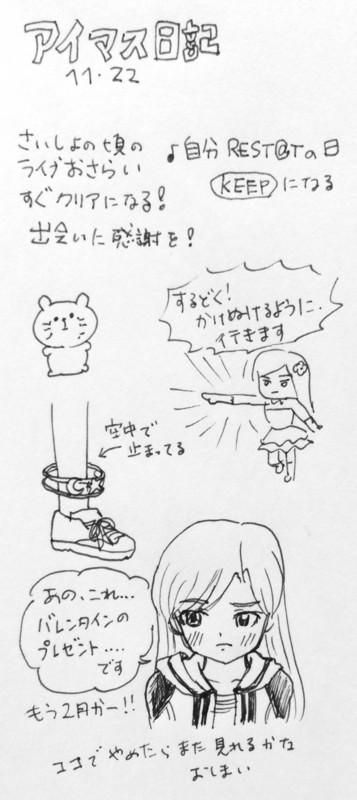 アイマス日記
11.22
さいしょの頃の
ライブおさらい
すぐクリアになる!
出会いに感謝を!
♪自分 REST@RTの日
KEEPになる
するどく!
かけぬけるように
行きます
空中で
止まってる
あの、これ...
バレンタインの
プレゼント....
です
もう2月かー!!
ココでやめたらまた見れるかな
おしまい